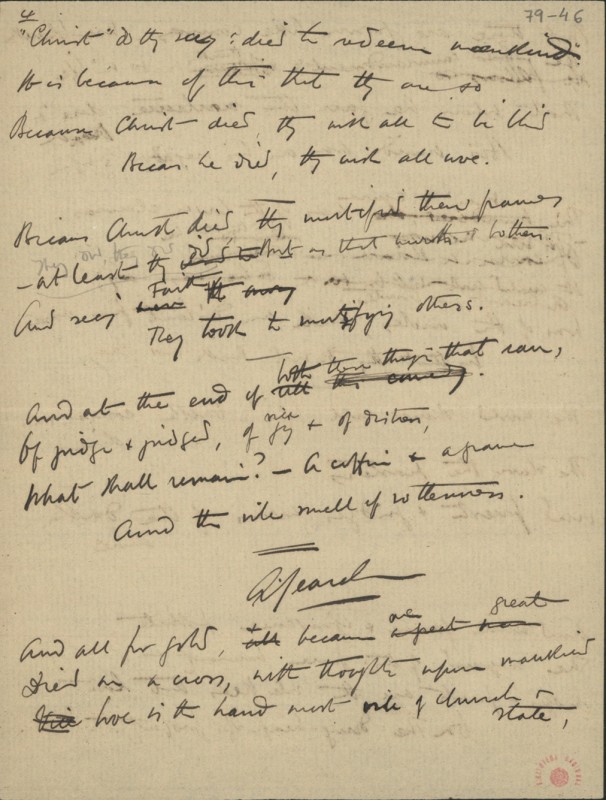 4
79-46
"Christ" do they say: "died to redeem mankind".
It is because of this that they are so
Because Christ died, they wish all to be
Because he died, they wish all woe.
Because Christ died they mortified their frames
- at least they did But as that bothers
And seeing Faith
They took to mortifying others.
And at the end of both these things that seem,
Of judge & judged, of joy & of distress,
What shall remain? - A coffin & a grave
And the vile smell of rottenness.
A. Search
And all for gold, & because one great
Died on a cross, with thoughts upon mankind
love is the hand most vile of church &
state,